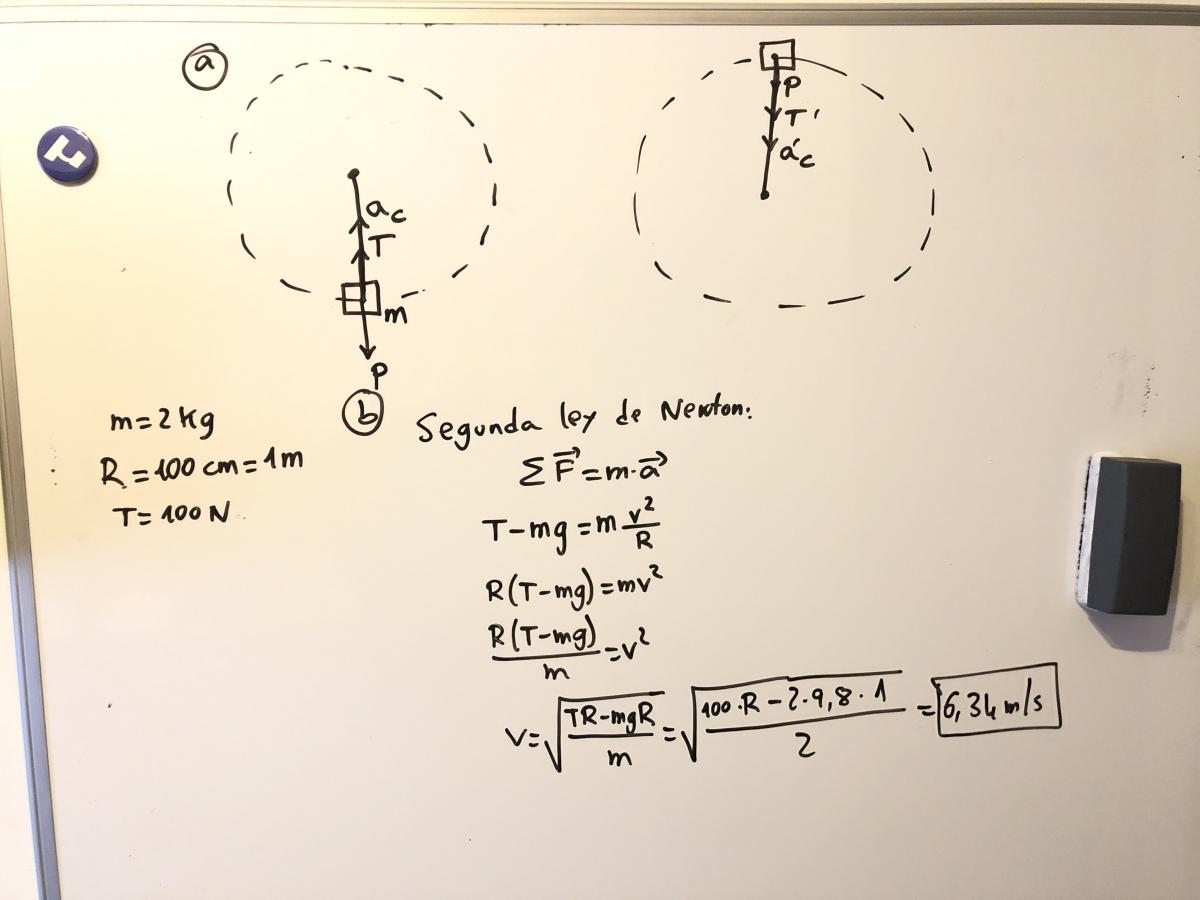 a
a_c
T
m
P
P
T'
a'_c
m = 2 kg
R = 100 cm = 1 m
T = 100 N
b Segunda ley de Newton:
Σ F⃗ = m · a⃗
T - mg = m v²/R
R(T - mg) = mv²
R(T - mg)/m = v²
v = √((TR - mgR)/m) = √((100 · R - 2 · 9,8 · 1)/2) = 6,34 m/s